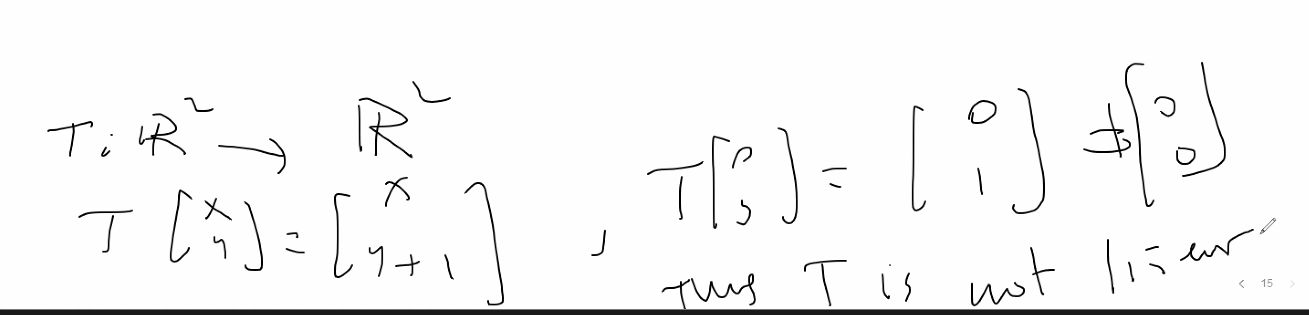 T: ℝ² → ℝ²
T [x y] = [x y+1] , T [0 0] = [0 1] ≠ [0 0]
thus T is not linear
15